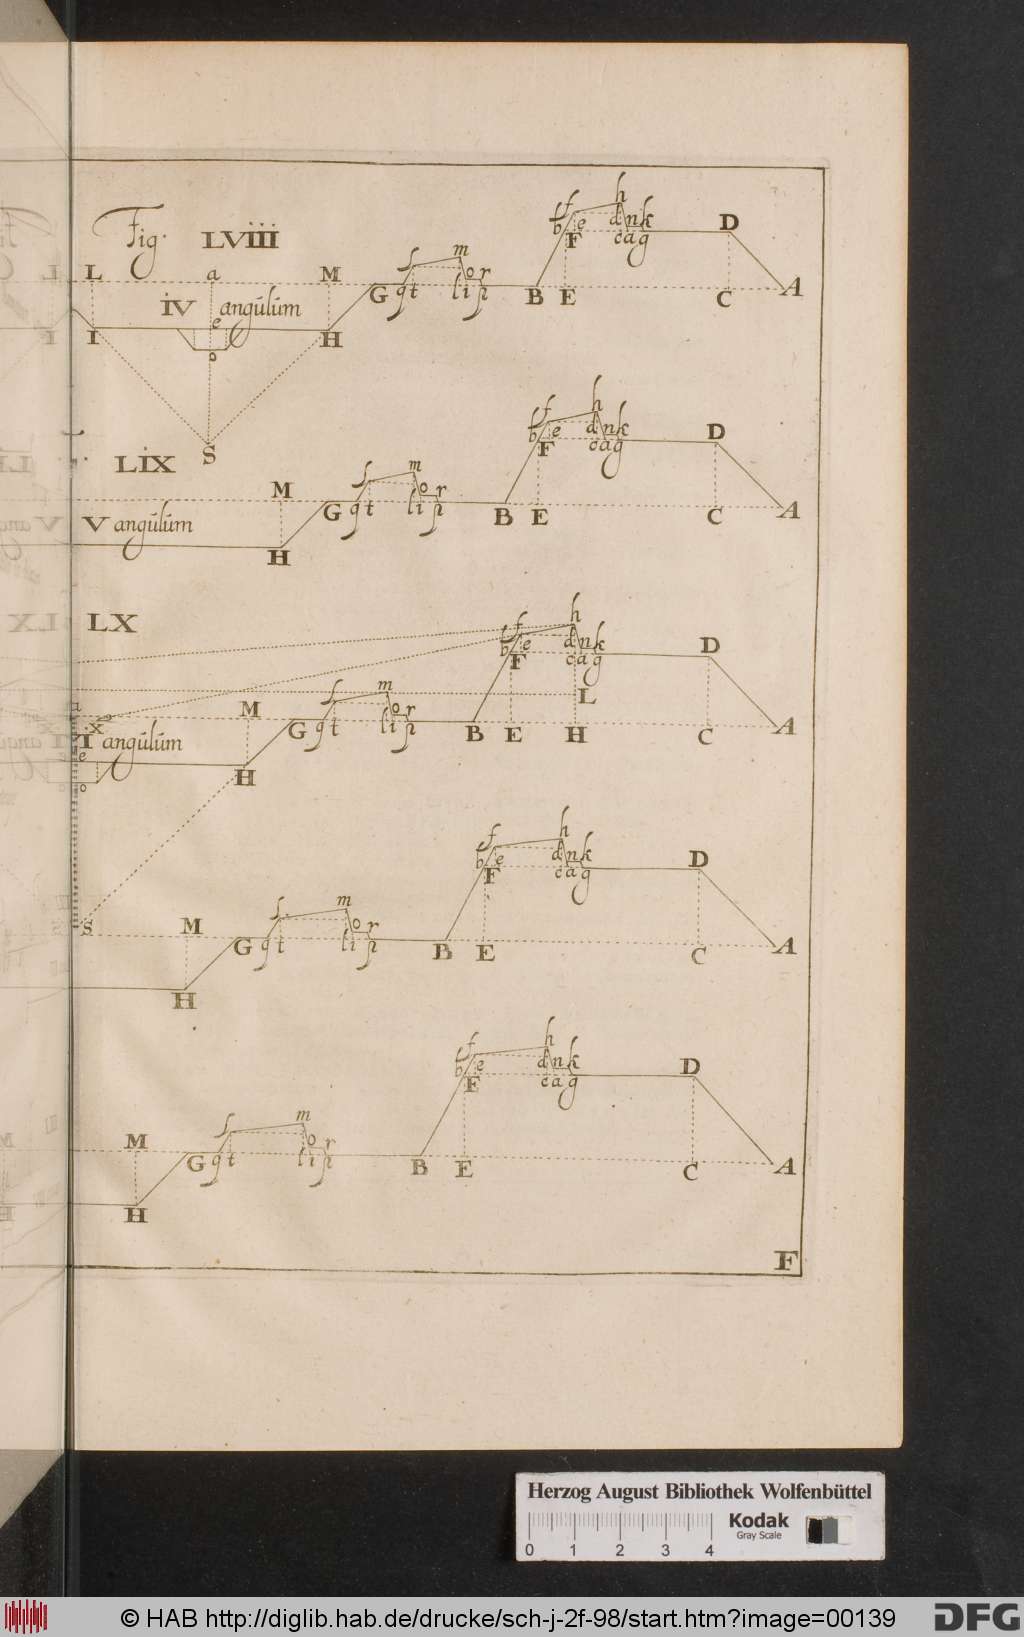 Fig. LVIII
h
f
b e d n k D
F c a g
L a M
f m
o r
G q t l i p B E C A
IV angulum
e
I o H
S
LIX
h
f
b e d n k D
F c a g
M
f m
o r
G q t l i p B E C A
V angulum
H
LX
h
f
b e d n k D
F c a g
L
f m
M
o r
G q t l i p B E H C A
X
I angulum
e
o H
S
h
f
b e d n k D
F c a g
f m
M o r
G q t l i p B E C A
H
h
f
b e d n k D
F c a g
f m
M o r
G q t l i p B E C A
H
F
Herzog August Bibliothek Wolfenbüttel
Kodak
Gray Scale
0 1 2 3 4
© HAB http://diglib.hab.de/drucke/sch-j-2f-98/start.htm?image=00139
DFG